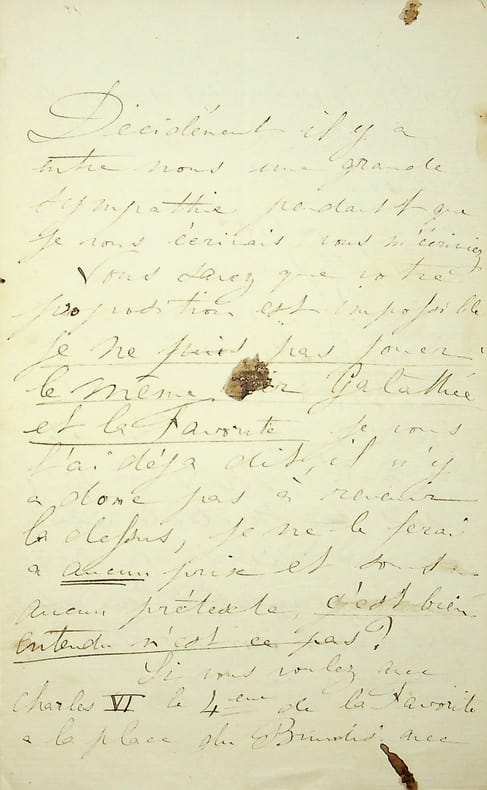 Décidément il y a
entre nous une grande
sympathie pendant que
je vous écrivais vous m'écriviez
Vous savez que votre
proposition est impossible
je ne puis pas jouer
le même Galathée
et la Favorite je vous
l'ai déja dit, il n'y
a donc pas à revenir
la dessus, je ne le ferai
a aucun prix et sous
aucun prétexte, c'est bien
entendu n'est ce pas?
Si vous voulez avec
Charles VI le 4eme de la Favorite
a la place du Brindisi avec